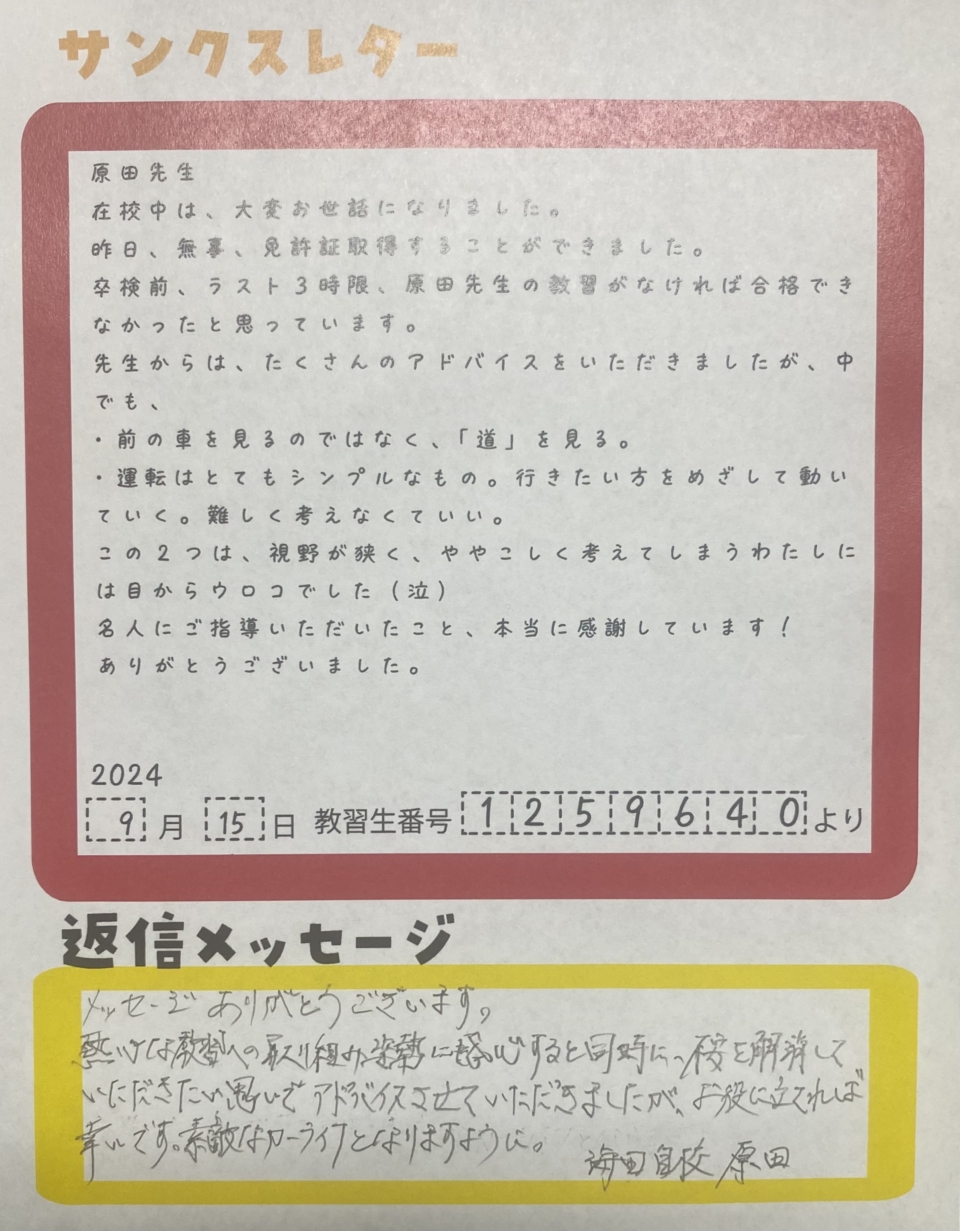 サンクスレター
原田先生
在校中は、大変お世話になりました。
昨日、無事、免許証取得することができました。
卒検前、ラスト3時限、原田先生の教習がなければ合格でき
なかったと思っています。
先生からは、たくさんのアドバイスをいただきましたが、中
でも、
・前の車を見るのではなく、「道」を見る。
・運転はとてもシンプルなもの。行きたい方をめざして動い
ていく。難しく考えなくていい。
この2つは、視野が狭く、ややこしく考えてしまうわたしに
は目からウロコでした(泣)
名人にご指導いただいたこと、本当に感謝しています!
ありがとうございました。
2024
9月 15日 教習生番号 1259640より
返信メッセージ
メッセージありがとうございます。
教習への取り組み姿勢に感心すると同時に、不安を解消して
いただきたい思いでアドバイスさせていただきましたが、お役に立てれば
幸いです。素敵なカーライフとなりますように。
海田自校 原田